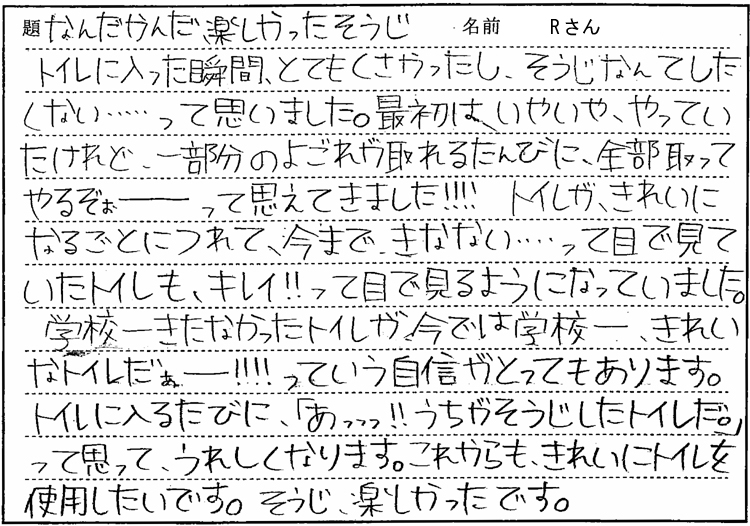 題 なんだかんだ楽しかったそうじ 名前 Rさん
トイレに入った瞬間、とてもくさかったし、そうじなんてした
くない……って思いました。最初は、いやいや、やってい
たけれど、一部分のよごれが取れるたんびに、全部取って
やるぞぉーーって思えてきました!!!! トイレが、きれいに
なるごとにつれて、今まで、きなない……って目で見て
いたトイレも、キレイ!!って目で見るようになっていました。
学校一きたなかったトイレが、今では学校一、きれい
なトイレだぁー!!!!っていう自信がとってもあります。
トイレに入るたびに、「あっっっ!!うちがそうじしたトイレだ。」
って思って、うれしくなります。これからも、きれいにトイレを
使用したいです。そうじ、楽しかったです。